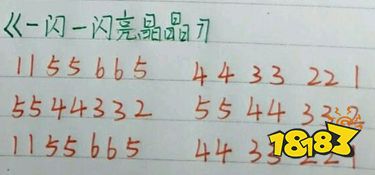 《一闪一闪亮晶晶》
1155665 4433221
5544332 554433
1155665 443
18183